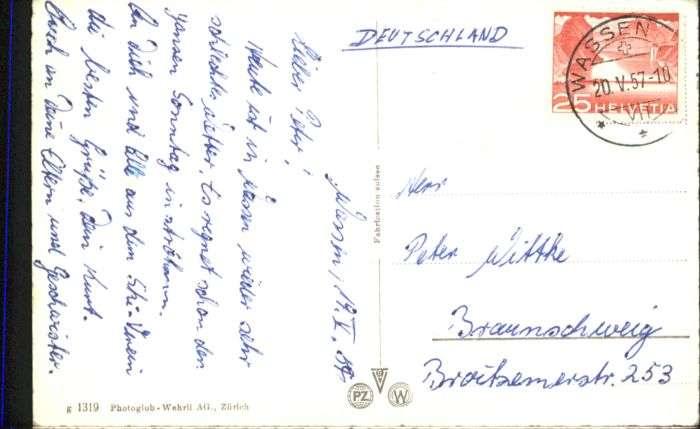 Wassen, 19.V.57.
Lieber Peter!
Heute ist in Wassen wieder sehr
schlechtes Wetter. Es regnet schon den
ganzen Sonntag in strömen.
An dich und alle aus dem Ski-Verein
die besten Grüße. Dein Kurt.
Auch an Deine Eltern und Geschwister.
g 1319 Photoglob-Wehrli AG., Zürich
Fabrication suisse
PZ
W
DEUTSCHLAND
25 HELVETIA
WASSEN
20.V.57-10
Herr
Peter Wittke
Braunschweig
Broitzemerstr. 253